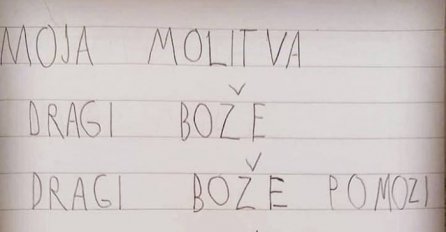 MOJA MOLITVA
DRAGI BOŽE
DRAGI BOŽE POMOZI